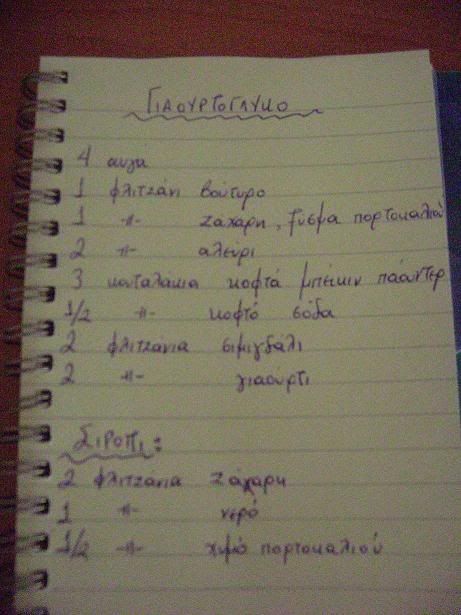 ΓΙΑΟΥΡΤΟΓΛΥΚΟ
4 αυγά
1 φλιτζάνι βούτυρο
1 -//- ζαχαρη, ξύσμα πορτοκαλιού
2 -//- αλεύρι
3 κουταλάκια κοφτά μπέικιν πάουντερ
1/2 -//- κοφτό σόδα
2 φλιτζάνια σιμιγδάλι
2 -//- γιαουρτι
ΣΙΡΟΠΙ:
2 φλιτζάνια ζάχαρη
1 -//- νερό
1/2 -//- χυμό πορτοκαλιού